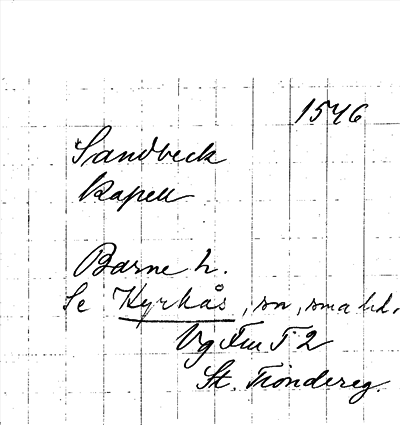 1546
Sandbeck
kapell
Barne h.
Se Kyrkås, sn, sma hd.
Vg Fm T 2
St. Tiondereg.